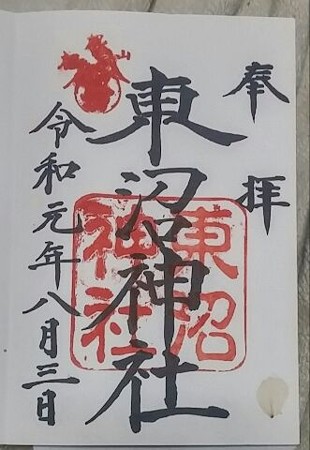 奉拝
東沼神社
東沼
神社
令和元年八月三日